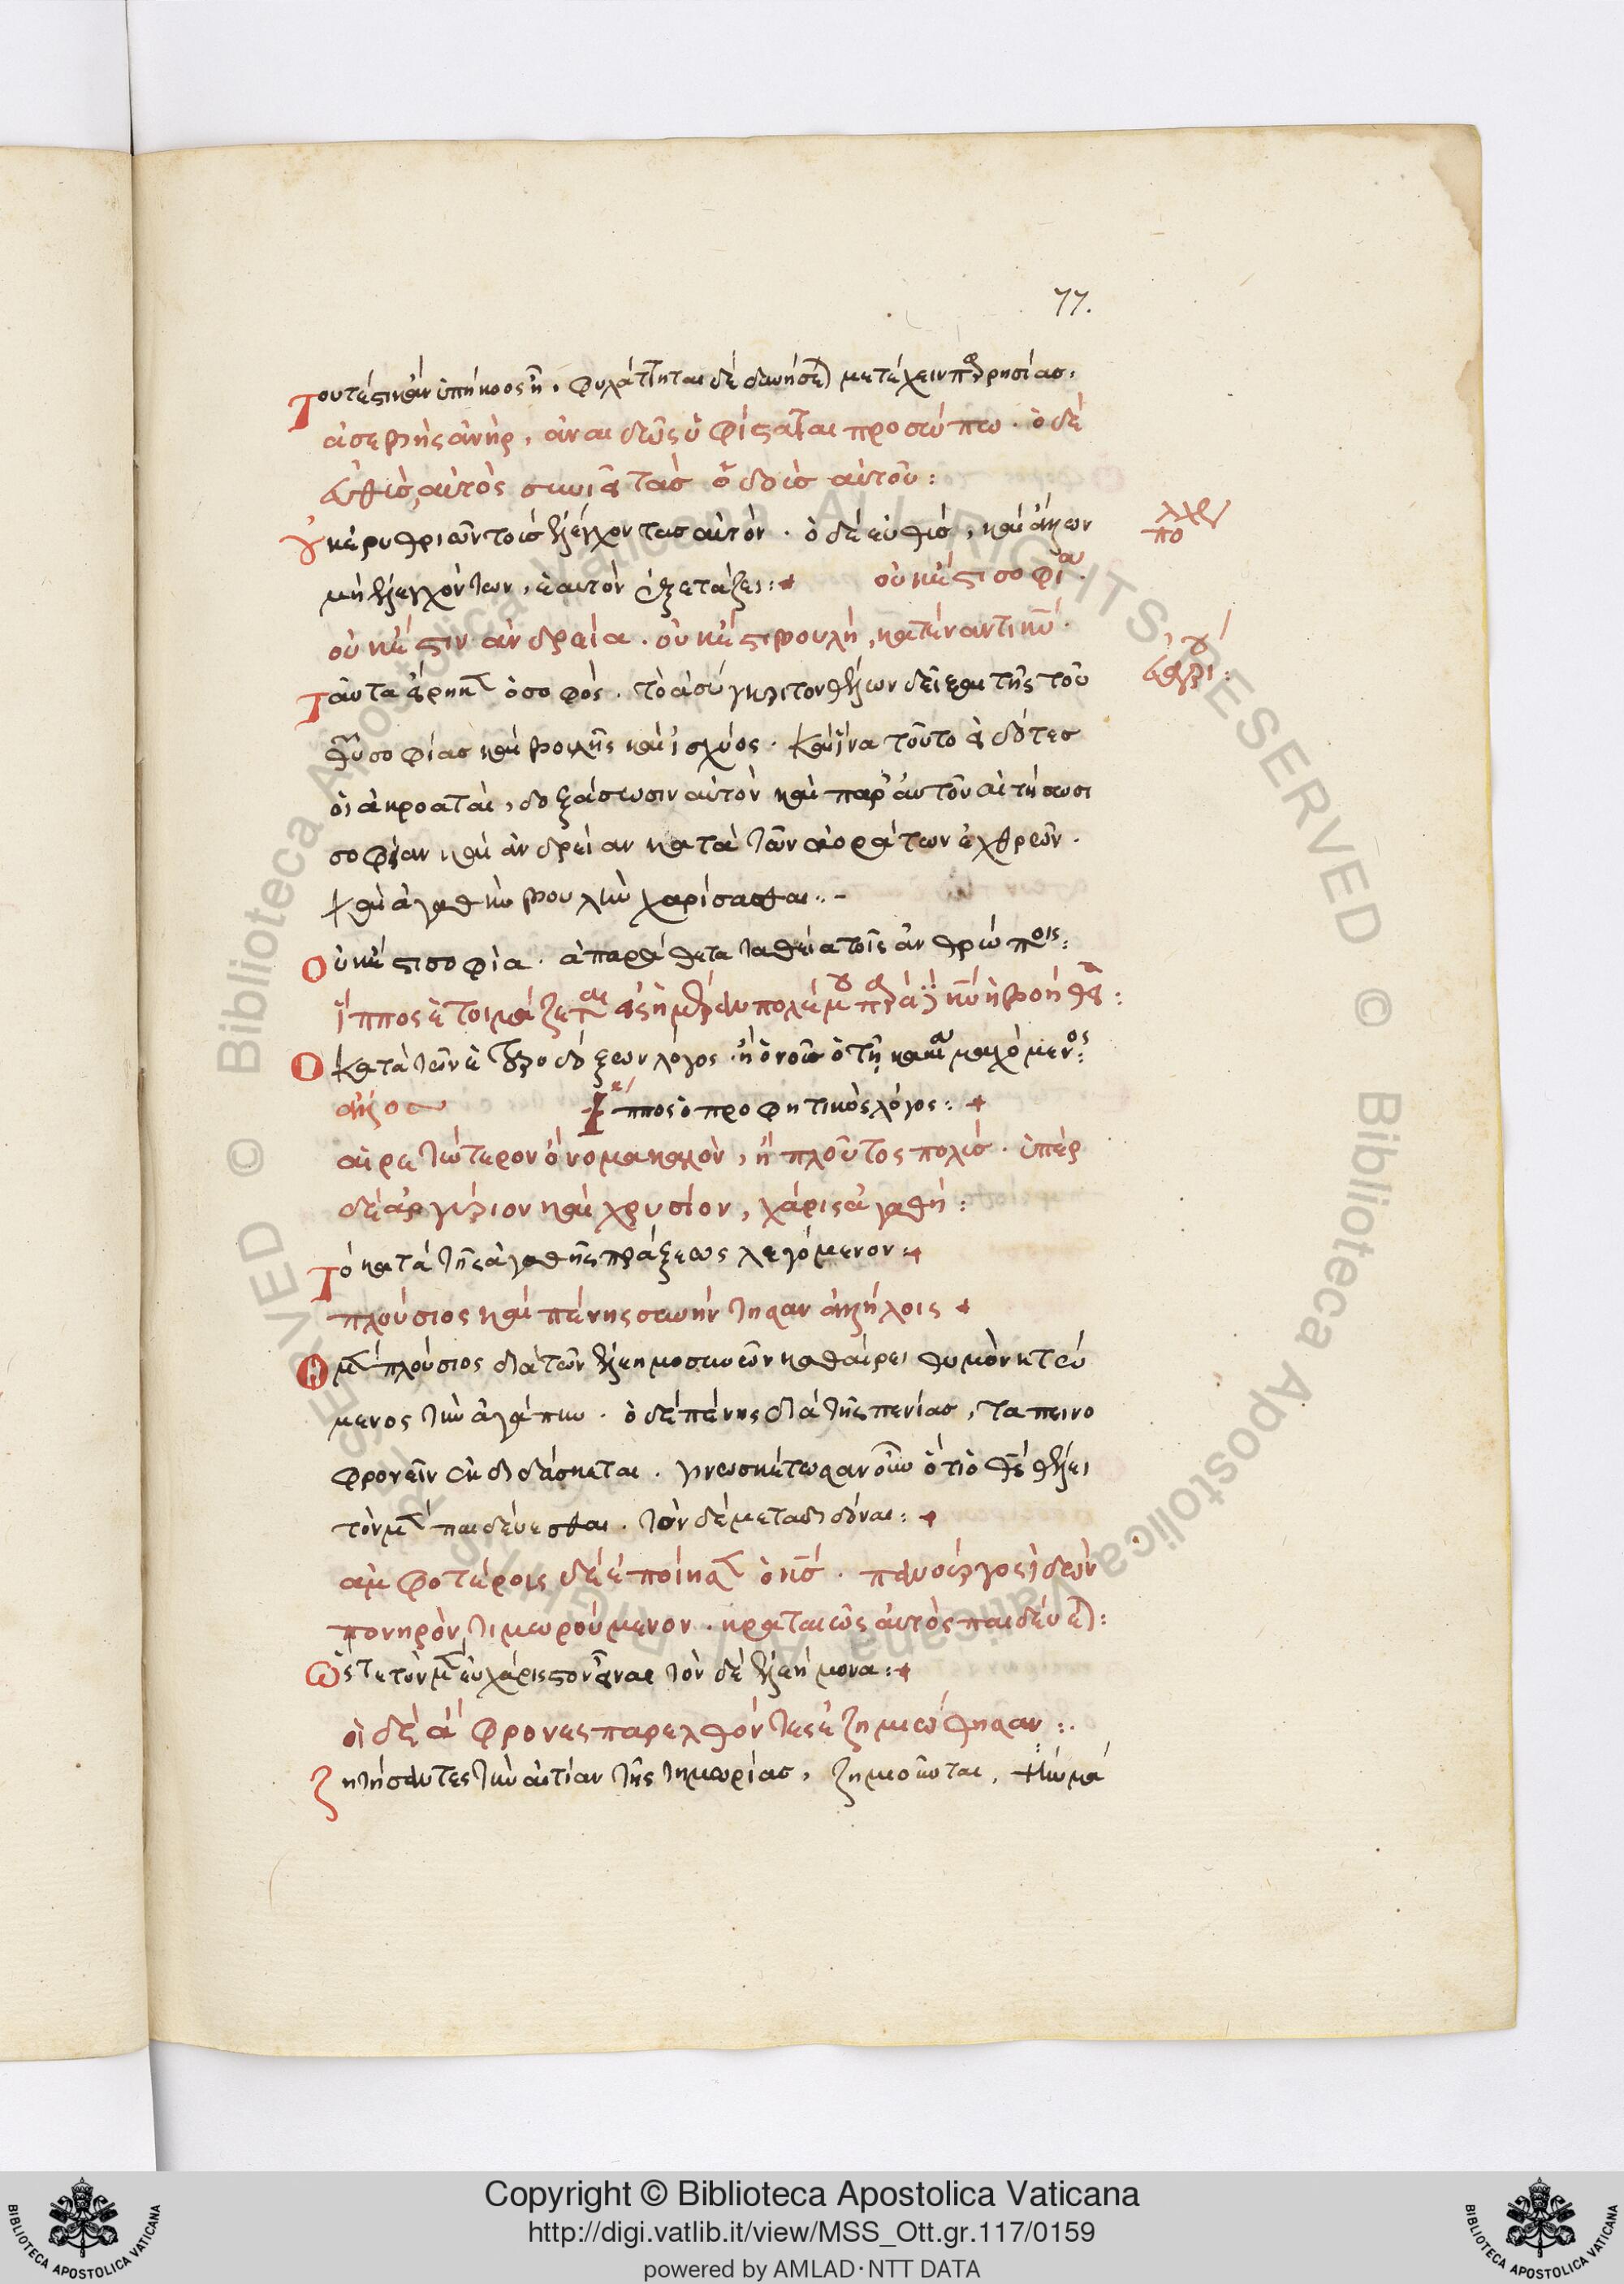 77.
Τουτέστι κἂν ὑπήκοος ᾖ. φυλάττηται δὲ μετέχειν παρρησίας.
ἀσεβὴς ἀνὴρ, ἀναιδῶς ὑφίσταται προσώπω. ὁ δὲ
εὐθὺς, αὐτὸς συνιεῖ τὰς ὁδοὺς αὐτοῦ:
Οὐκ ἐρυθριῶν τοὺς ἐλέγχοντας αὐτόν. ὁ δὲ εὐθὺς, καὶ ἄλλων
μὴ ἐλεγχόντων, ἑαυτὸν ἐξετάζει:+ οὐκ ἔστι σοφία.
οὐκ ἔστιν ἀνδρεία. οὐκ ἔστι βουλὴ, κατέναντι κυ.
Ταῦτα εἴρηκεν ὁ σοφὸς. τὸ ἀσύγκριτον θέλων δεῖξαι τῆς τοῦ
θυ σοφίας καὶ βουλῆς καὶ ἰσχύος. καὶ ἵνα τοῦτο εἰδότες
οἱ ἀκροαταὶ, δοξάσωσιν αὐτὸν καὶ παρ' αὐτοῦ αἰτήσωσι
σοφίαν καὶ ἀνδρείαν κατὰ τῶν ἀοράτων ἐχθρῶν.
καὶ ἀγαθὴν βουλὴν χαρίσασθαι:-
Οὐκ ἔστι σοφία. ἀπαράθετα τὰ θεῖα τοῖς ἀνθρώποις:
ἵππος ἑτοιμάζεται εἰς ἡμέραν πολέμου παρὰ δὲ κυ ἡ βοήθεια:
Ὁ κατὰ τῶν ἑτεροδόξων λόγος. ἢ ὁ νοῦς ὁ τῇ κακία μαχόμενος:
ἄλλος Ἵππος ὁ προφητικὸς λόγος:+
αἱρετώτερον ὄνομα καλὸν, ἢ πλοῦτος πολύς. ὑπὲρ
δὲ ἀργύριον καὶ χρυσίον, χάρις ἀγαθή:
Τὸ κατὰ τῆς ἀγαθῆς πράξεως λεγόμενον:+
πλούσιος καὶ πένης συνήντησαν ἀλλήλοις +
Ὁ μὲν πλούσιος διὰ τῶν ἐλεημοσυνῶν καθαίρει θυμὸν κτώ
μενος τὴν ἀγάπην. ὁ δὲ πένης διὰ τῆς πενίας, ταπεινο
φρονεῖν ἐκδιδάσκεται. γινωσκέτωσαν οὖν ὅτι ὁ θς θέλει
τὸν μὲν παιδεύεσθαι. τὸν δὲ μεταδιδόναι:+
ἀμφοτέροις δὲ ἐποίησεν ὁ κς. πανοῦργος ἰδὼν
πονηρὸν τιμωρούμενον. κραταιῶς αὐτὸς παιδεύεται:
Ὥστε τὸν μὲν εὐχάριστον εἶναι τὸν δὲ ἐλεήμονα:+
οἱ δὲ ἄφρονες παρελθόντες ἐζημιώθησαν:.
Ζητήσαντες τὴν αἰτίαν τῆς τιμωρίας, ζημιοῦνται,
Copyright © Biblioteca Apostolica Vaticana
http://digi.vatlib.it/view/MSS_Ott.gr.117/0159
powered by AMLAD·NTT DATA